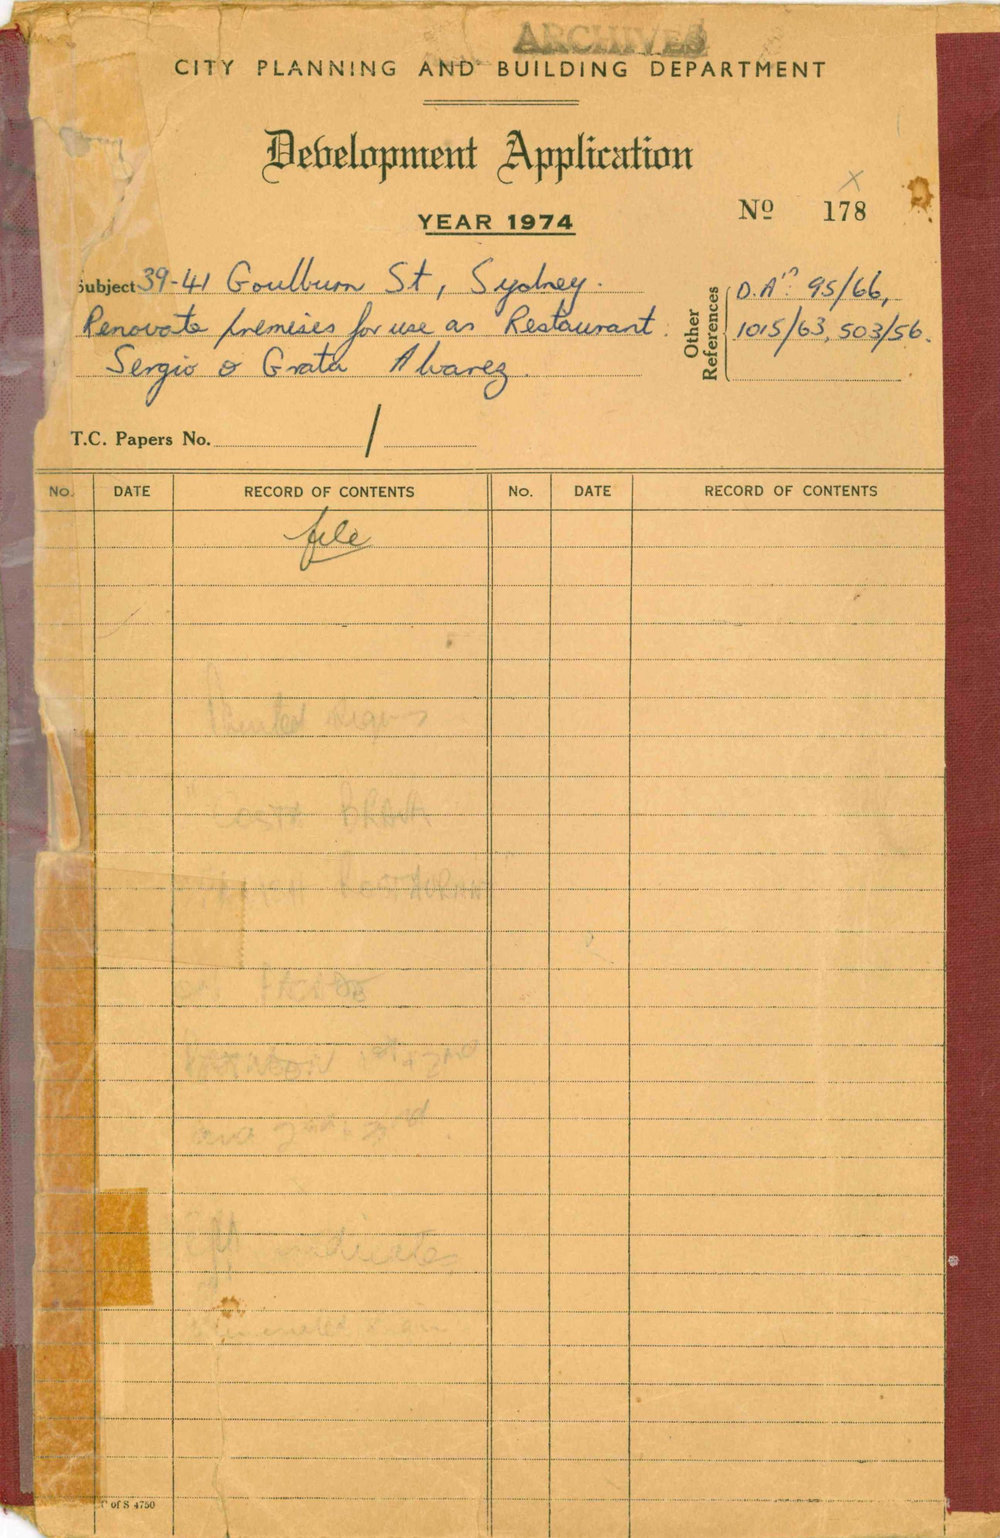 ARCHIVES
CITY PLANNING AND BUILDING DEPARTMENT
Development Application
YEAR 1974
No 178
X
Subject 39-41 Goulburn St, Sydney.
Renovate premises for use as Restaurant.
Sergio & Grata Alvarez.
Other References
D.A. 95/66,
1015/63, 503/56.
T.C. Papers No. /
No. DATE RECORD OF CONTENTS No. DATE RECORD OF CONTENTS
file
COSTA BRAVA
RESTAURANT"
FACADE
2ND
indicates
C of S 4750